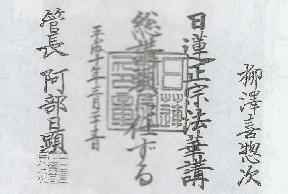 柳澤喜惣次
日蓮正宗法華講
総講頭に任ずる
平成十年三月二十五日
管長 阿部日顕